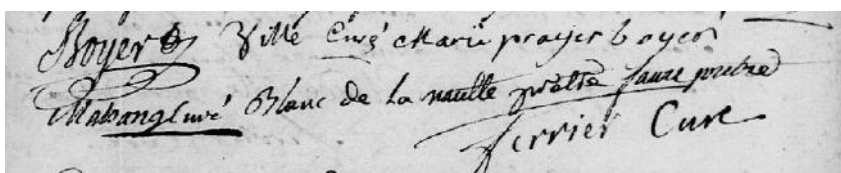 Boyer Ville Curé Marie prayer boyer
Mabang Curé Blanc de La naulte prêtre faure prêtre
Ferrier Curé